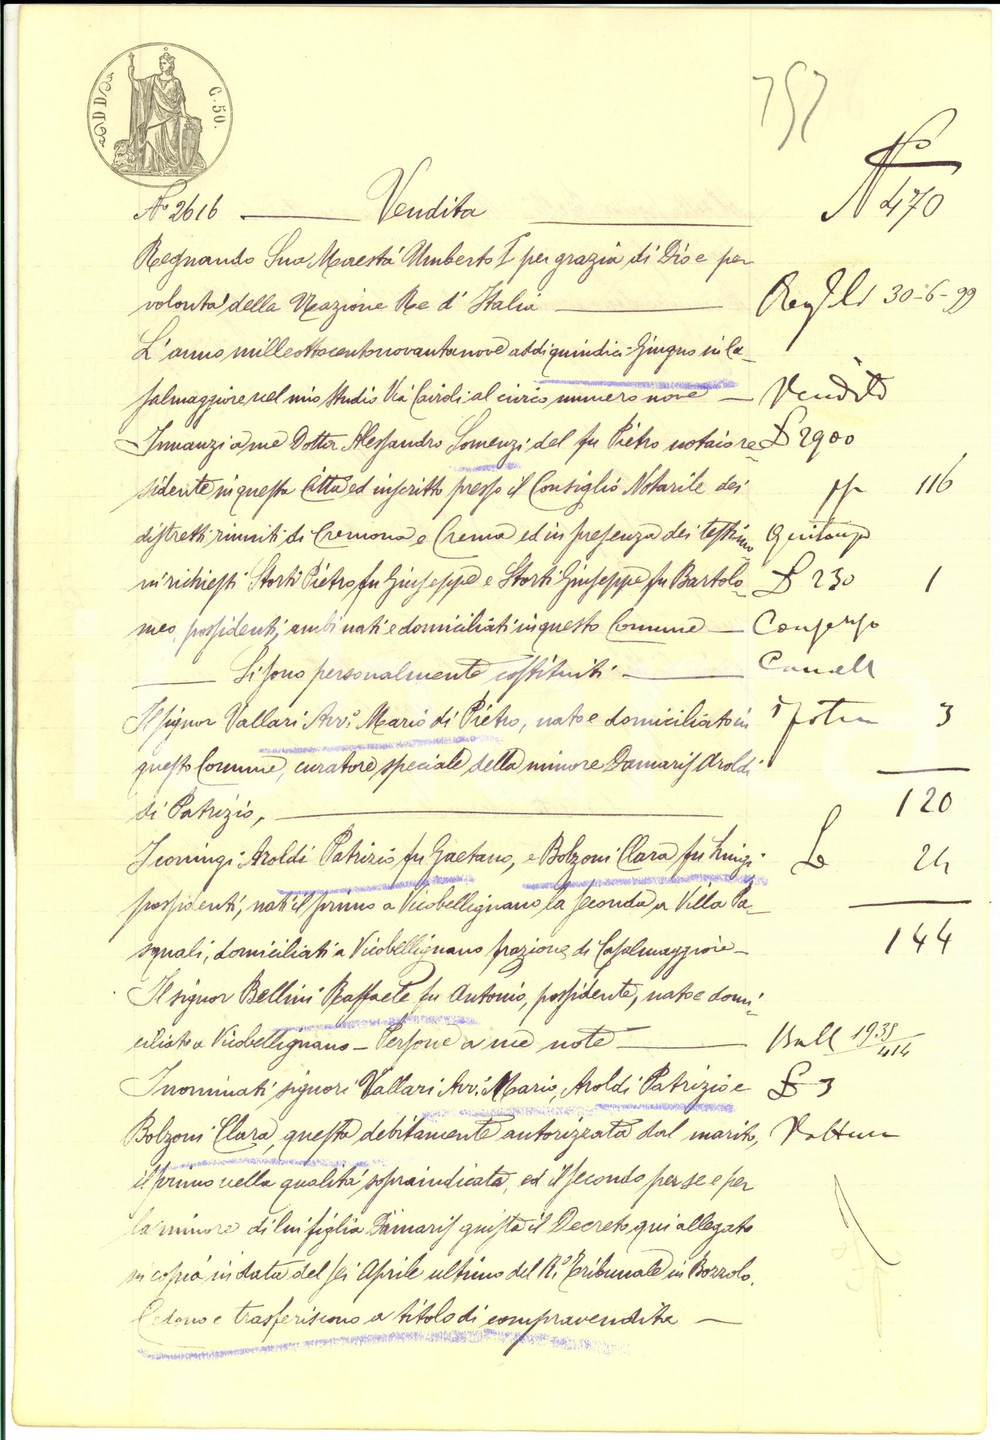 C. 50.
757
N° 2616 Vendita
N° 470
Regnando Sua Maestà Umberto I° per grazia di Dio e per
volontà della Nazione Re d'Italia
30-6-99
L'anno milleottocentonovantanove addi quindici Giugno in Ca-
salmaggiore nel mio studio Via Cairoli al civico numero nove
Vendita
Innanzi a me Dottor Alessandro Lomenzi del fu Pietro notaio re-
£ 2900
sidente in questa Città ed inscritto presso il Consiglio Notarile dei
116
distretti riuniti di Cremona e Crema ed in presenza dei testimo-
Quitanza
ni richiesti Storti Pietro fu Giuseppe e Storti Giuseppe fu Bartolo-
£ 230 1
meo, possidenti, ambi nati e domiciliati in questo Comune
Consenso
Si sono personalmente costituiti
Cancell
Il signor Vallari Avv.° Mario di Pietro, nato e domiciliato in
3
questo Comune, curatore speciale della minore Damaris Aroldi
di Patrizio,
120
I coniugi Aroldi Patrizio fu Gaetano, e Bolzoni Clara fu Luigi
24
possidenti, nati il primo a Vicobellignano la seconda a Villa Pa-
squali, domiciliati a Vicobellignano frazione di Casalmaggiore
144
Il signor Bellini Raffaele fu Antonio, possidente, nato e domi-
ciliato a Vicobellignano - Persone a me note
Boll 19.35/414
I nominati signori Vallari Avv. Mario, Aroldi Patrizio e
£ 3
Bolzoni Clara, questa debitamente autorizzata dal marito,
Volture
il primo nella qualità sopraindicata, ed il secondo per se e per
la minore di lui figlia Damaris giusta il Decreto qui allegato
in copia in data del sei Aprile ultimo del R.° Tribunale in Bozzolo.
Cedono e trasferiscono a titolo di compravendita